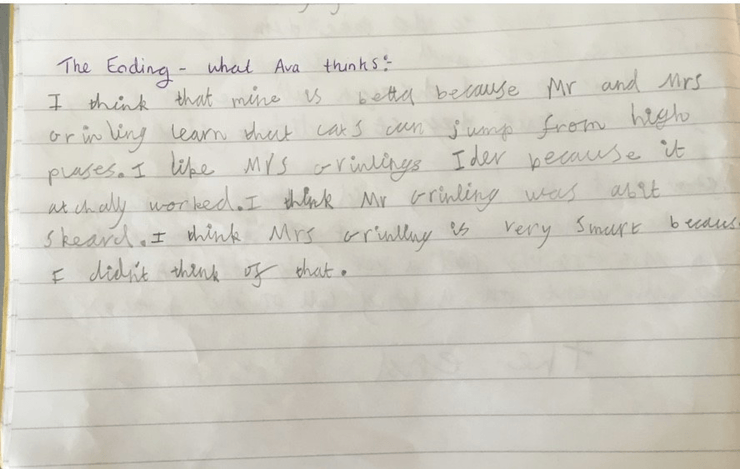 The Ending - what Ava thinks:
I think that mine is betta because Mr and Mrs
Grinling learn that cats can jump from high
plases. I like Mrs Grinlings Ider because it
atchaly worked. I think Mr Grinling was abit
skeard. I think Mrs Grinling is very smart becaus
I didn't think of that.